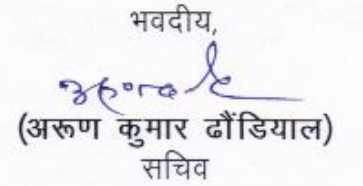 भवदीय,
(अरूण कुमार ढौंडियाल)
सचिव